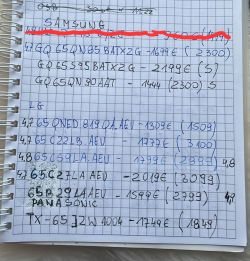 SAMSUNG
GQ65QN85BATXZG - 1699€ (2300)
GQ65S95BATXZG - 2199€ (S)
GQ65QN90AAT - 1444 (2300) S
LG
4,7 65QNED819QA.AEU - 1309€ (1509)
4,7 65C22LB.AEU - 1777€ (3100)
4,8 65G69LA.AEU - 1799€ (2899) 4,8
4,7 65C27LA.AEU - 2019€ (3099)
65B29LA.AEU - 1599€ (2799)
PANASONIC
TX-65JZW1004 - 1749€ (1849)